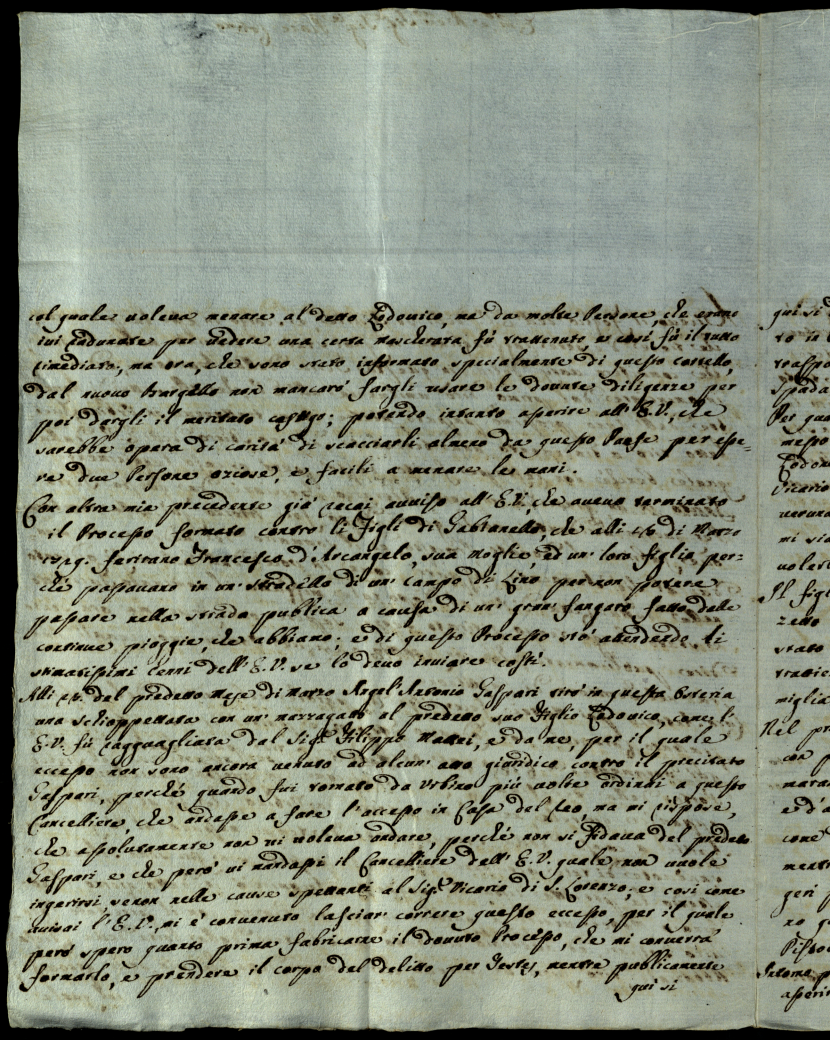 col quale voleva menare al detto Lodovico, ma da molte Persone, che erano
ivi radunate per vedere una certa mascherata fù trattenuto, e così fù il tutto
rimediato, ma ora, che sono stato informato specialmente di questo cortello,
dal nuovo Bargello non mancarò fargli usare le dovute diligenze per
poi dergli il meritato castigo; potendo intanto asperire all' E.V., che
sarebbe opera di carità di scacciarli almeno da questo Paese per esse-
re due Persone oziose, e facili a menare le mani.
Con altra mia precedente già recai avviso all' E.V., che avevo terminato
il Processo formato contro li Figli di Gabianello, che alli di Marzo
ferirano Francesco d'Arcangelo, sua moglie, ed un' loro figlia, per=
ché passavano in un' stradello di un' campo di Lino per non potere
passare nella strada publica a causa di un' gran' fangaro fatto dalle
continue pioggie, che abbiano; e di questo Processo stò attendendo li
stimatissimi cenni dell' E.V. se lo devo inviare costì.
Alli del predetto mese di Marzo Angel' Antonio Gaspari tirò in questa Osteria
una schioppettata con un' al predetto suo Figlio Lodovico, come l'
E.V. fù ragguagliata dal Sig.r Filippo Mattei, e da me, per il quale
eccesso non sono ancora venuto ad alcun' atto giuridico contro il precitato
Gaspari, perché quando fui tornato da Urbino più volte ordinai a questo
Cancelliere, che andasse a fare l'accesso in Casa del Reo, ma mi rispose,
che assolutamente non vi voleva andare, perché non si fidava del predetto
Gaspari, e che però vi mandassi il Cancelliere dell' E.V. quale non vuole
ingerirsi, se non nelle cause spettanti al Sig.r Vicario di S. Lorenzo, e così come
avisai l'E.V., mi è convenuto lasciar correre questo eccesso, per il quale
però spero quanto prima fabricarne il dovuto Processo, che mi converrà
formarlo, e prendere il corpo del delitto per Testes, mentre publicamente
qui si